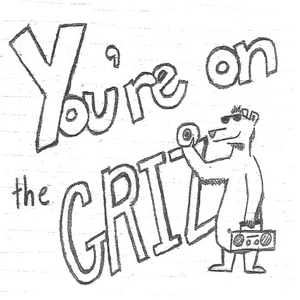 You're on
the GRIZ